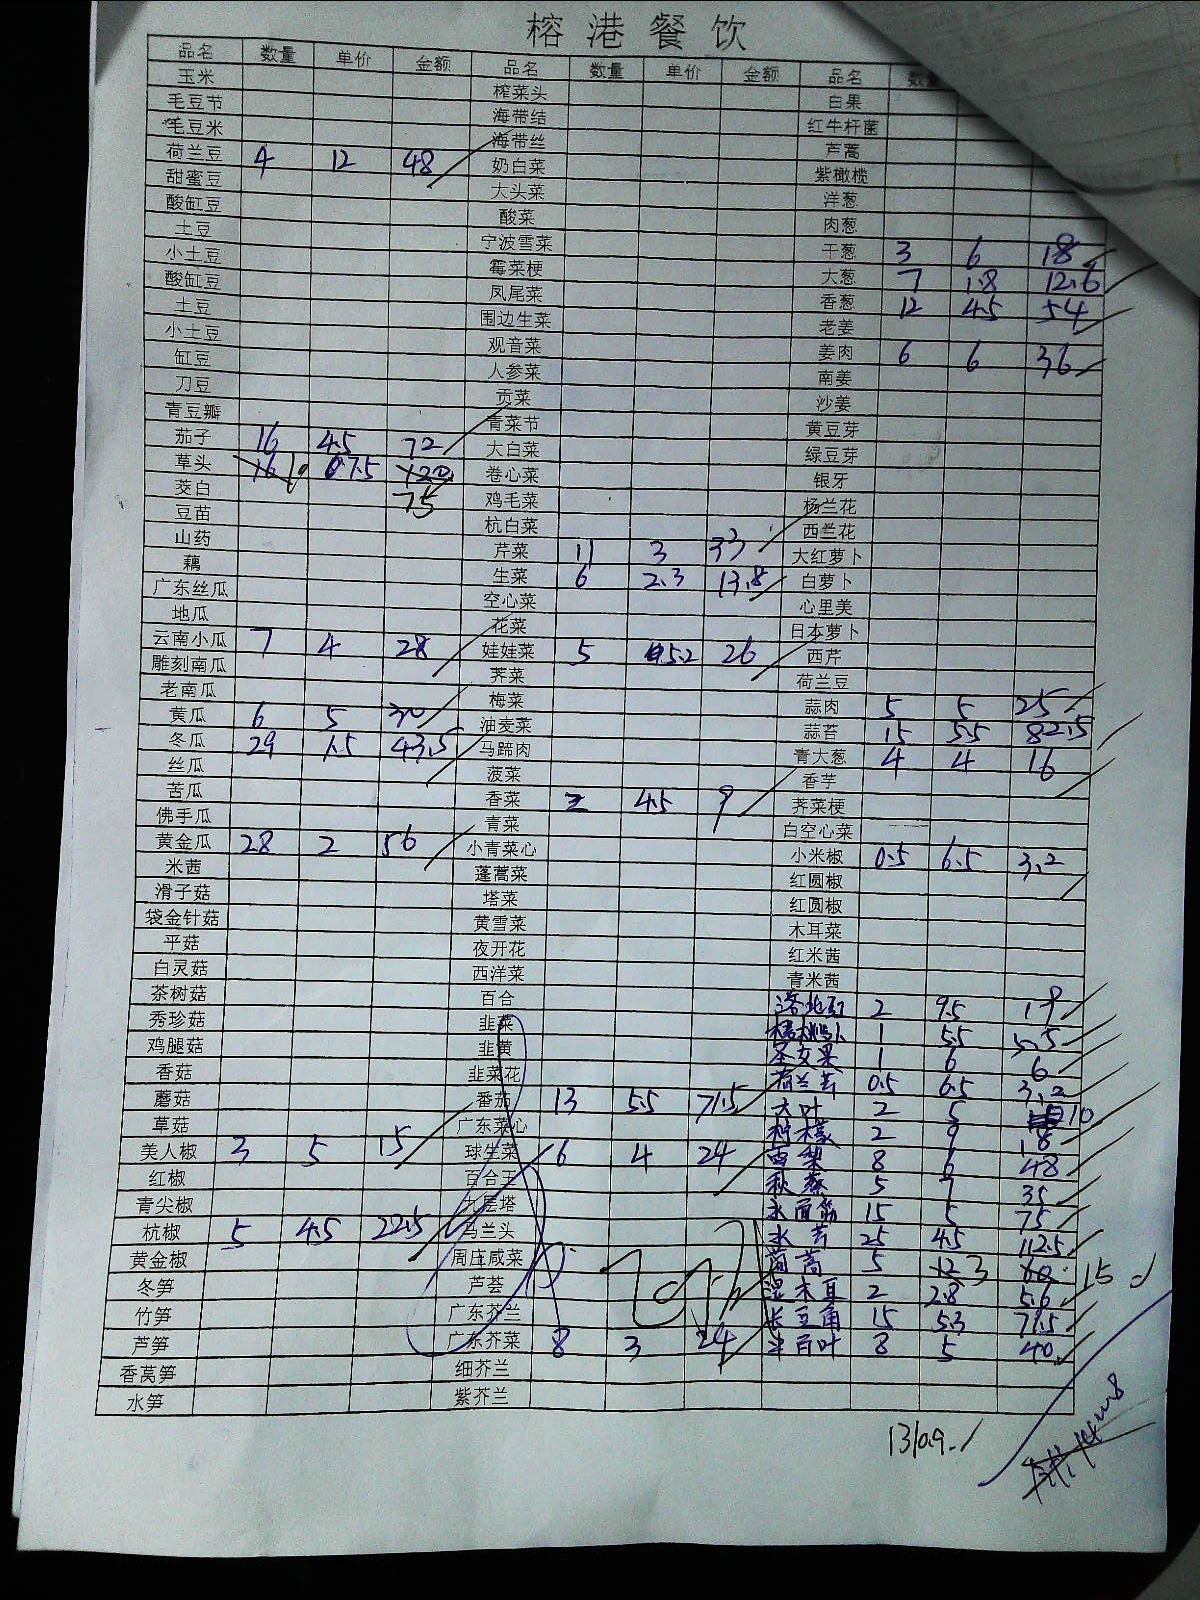 榕港餐饮
品名 数量 单价 金额 品名 数量 单价 金额 品名
玉米 榨菜头 白果
毛豆节 海带结 红牛杆菌
毛豆米 海带丝 芦蒿
荷兰豆 4 12 48 奶白菜 紫橄榄
甜蜜豆 大头菜 洋葱
酸缸豆 酸菜 肉葱
土豆 宁波雪菜 干葱 3 6 18
小土豆 霉菜梗 大葱 7 1.8 12.6
酸缸豆 凤尾菜 香葱 12 4.5 54
土豆 围边生菜 老姜
小土豆 观音菜 姜肉 6 6 36
缸豆 人参菜 南姜
刀豆 贡菜 沙姜
青豆瓣 青菜节 黄豆芽
茄子 16 4.5 72 大白菜 绿豆芽
草头 16 10 7.5 120 卷心菜 银牙
茭白 75 鸡毛菜 杨兰花
豆苗 杭白菜 西兰花
山药 芹菜 11 3 33 大红萝卜
藕 生菜 6 2.3 13.8 白萝卜
广东丝瓜 空心菜 心里美
地瓜 花菜 日本萝卜
云南小瓜 7 4 28 娃娃菜 5 5.2 26 西芹
雕刻南瓜 荠菜 荷兰豆
老南瓜 梅菜 蒜肉 5 5 25
黄瓜 6 5 30 油麦菜 蒜苔 15 5.5 82.5
冬瓜 29 1.5 43.5 马蹄肉 青大葱 4 4 16
丝瓜 菠菜 香芋
苦瓜 香菜 2 4.5 9 荠菜梗
佛手瓜 青菜 白空心菜
黄金瓜 28 2 56 小青菜心 小米椒 0.5 6.5 3.2
米茜 蓬蒿菜 红圆椒
滑子菇 塔菜 红圆椒
袋金针菇 黄雪菜 木耳菜
平菇 夜开花 红米茜
白灵菇 西洋菜 青米茜
茶树菇 百合 2 9.5 19
秀珍菇 韭菜 1 5.5 5.5
鸡腿菇 韭黄 1 6 6
香菇 韭菜花 荷兰芹 0.5 6.5 3.2
蘑菇 番茄 13 5.5 71.5 大叶 2 5 10
草菇 广东菜心 柠檬 2 9 18
美人椒 3 5 15 球生菜 6 4 24 雪梨 8 6 48
红椒 百合王 5 7 35
青尖椒 九层塔 水面筋 15 5 75
杭椒 5 4.5 22.5 马兰头 水芹 25 4.5 112.5
黄金椒 周庄咸菜 茼蒿 5 12 3 60 15
冬笋 芦荟 湿木耳 2 2.8 5.6
竹笋 广东芥兰 长豆角 15 5.3 71.5
芦笋 广东芥菜 8 3 24 百叶 8 5 40
香莴笋 细芥兰
水笋 紫芥兰
1310.9